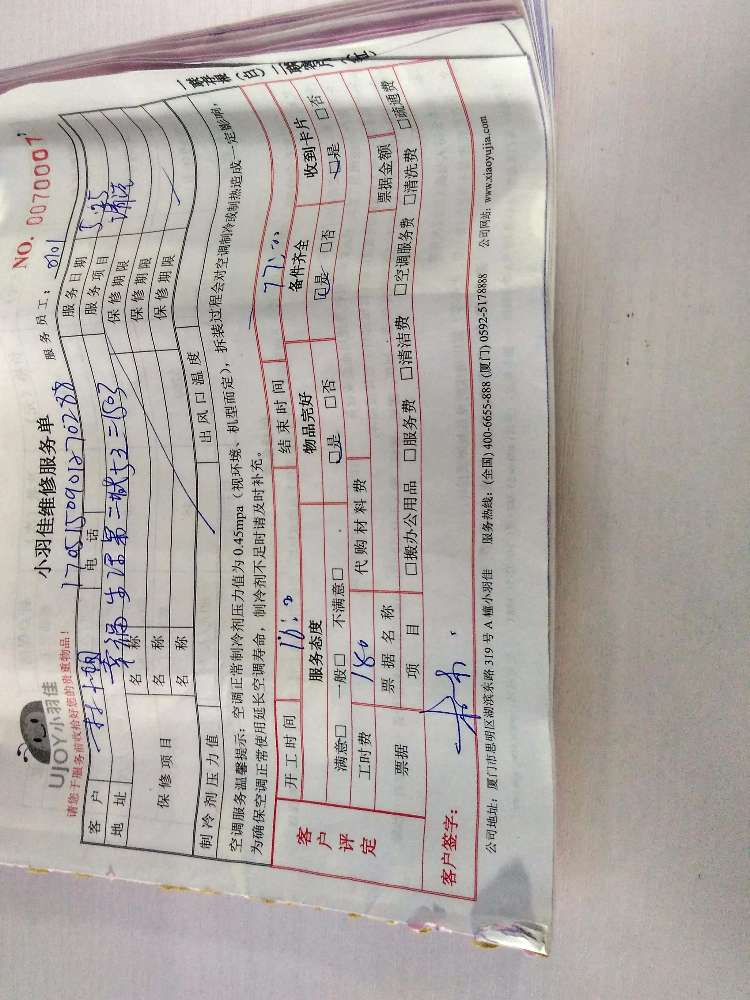 UJOY小羽佳
小羽佳维修服务单
NO. 0070001
请您于服务前收拾好您的贵重物品!
服务员工:
客户 电话 1705150901270288 服务日期 5.25
地址 幸福生活第二城 52=1503 服务项目 清洗
保修项目 名称 保修期限
名称 保修期限
名称 保修期限
制冷剂压力值 出风口温度
空调服务温馨提示:空调正常制冷剂压力值为 0.45mpa(视环境、机型而定),拆装过程会对空调制冷或制热造成一定影响,
为确保空调正常使用延长空调寿命,制冷剂不足时请及时补充。
客户评定 开工时间 16:00 结束时间 17:00
服务态度 物品完好 备件齐全 收到卡片
满意□ 一般□ 不满意□ □是 □否 □是 □否 □是 □否
工时费 180 代购材料费
票据 票据名称 票据金额
项目 □搬办公用品 □服务费 □清洁费 □空调服务费 □清洗费 □疏通费
客户签字:
公司地址:厦门市思明区湖滨东路 319 号 A 幢小羽佳 服务热线:(全国) 400-6655-888 (厦门) 0592-5178888 公司网站:www.xiaoyujia.com